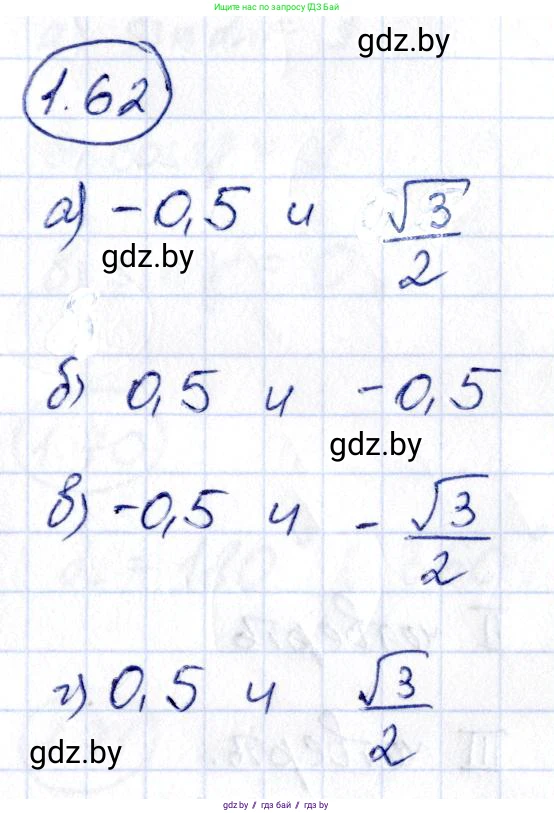 Ищите нас по запросу ГДЗ Бай
gdz.by
1.62
а) -0,5 и √3/2
gdz.by
б) 0,5 и -0,5
gdz.by
в) -0,5 и -√3/2
г) 0,5 и √3/2
gdz.by
gdz.by // гдз бай // гдз by